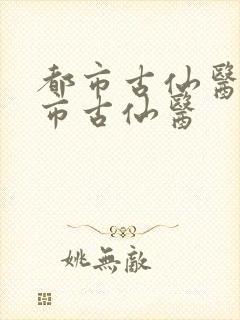 都市古仙醫
市古仙醫
姚無敵